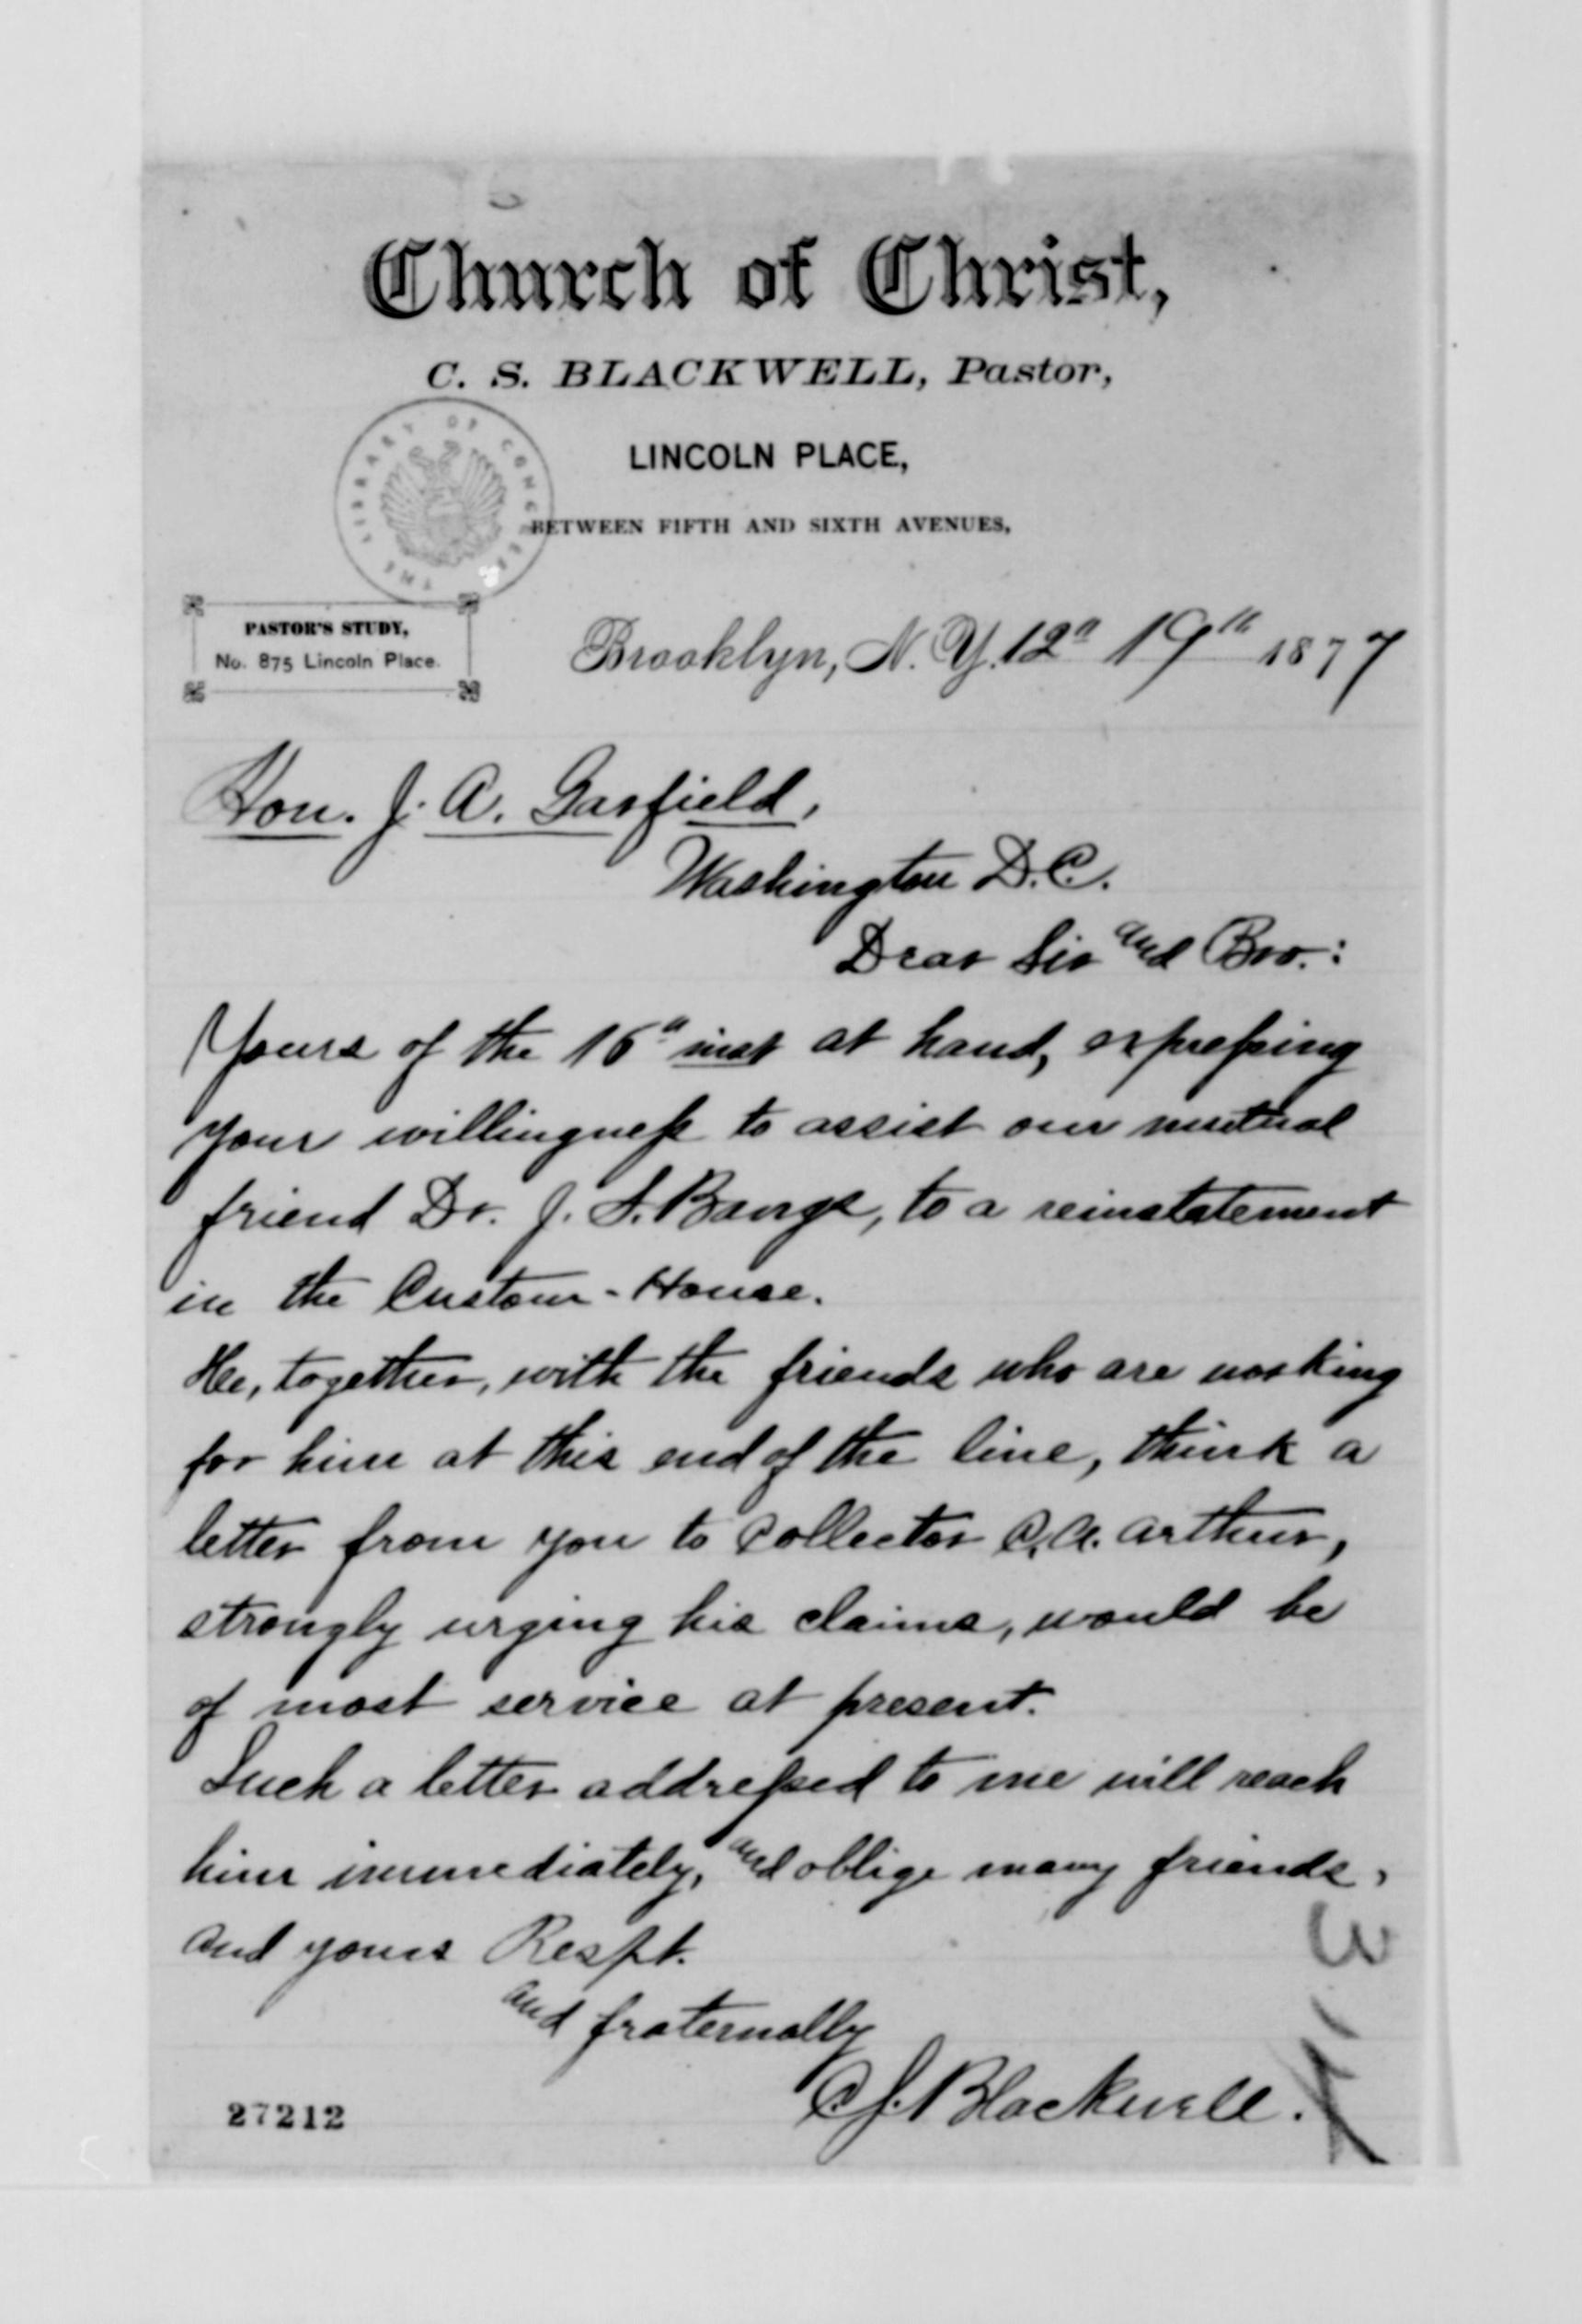 Church of Christ,
C. S. BLACKWELL, Pastor,
LINCOLN PLACE,
BETWEEN FIFTH AND SIXTH AVENUES,
THE LIBRARY OF CONGRESS
PASTOR'S STUDY,
No. 875 Lincoln Place.
Brooklyn, N. Y. 12" 19th 1877
Hon. J. A. Garfield,
Washington D.C.
Dear Sir and Bro.:
Yours of the 16" inst at hand, expreſsing
your willingneſs to assist our mutual
friend Dr. J. S. Bangs, to a reinstatement
in the Custom-House.
He, together, with the friends who are working
for him at this end of the line, think a
letter from you to Collector C. A. Arthur,
strongly urging his claims, would be
of most service at present.
Such a letter addreſsed to me will reach
him immediately, and oblige many friends,
and yours Respt.
and fraternally
C. S. Blackwell.
27212